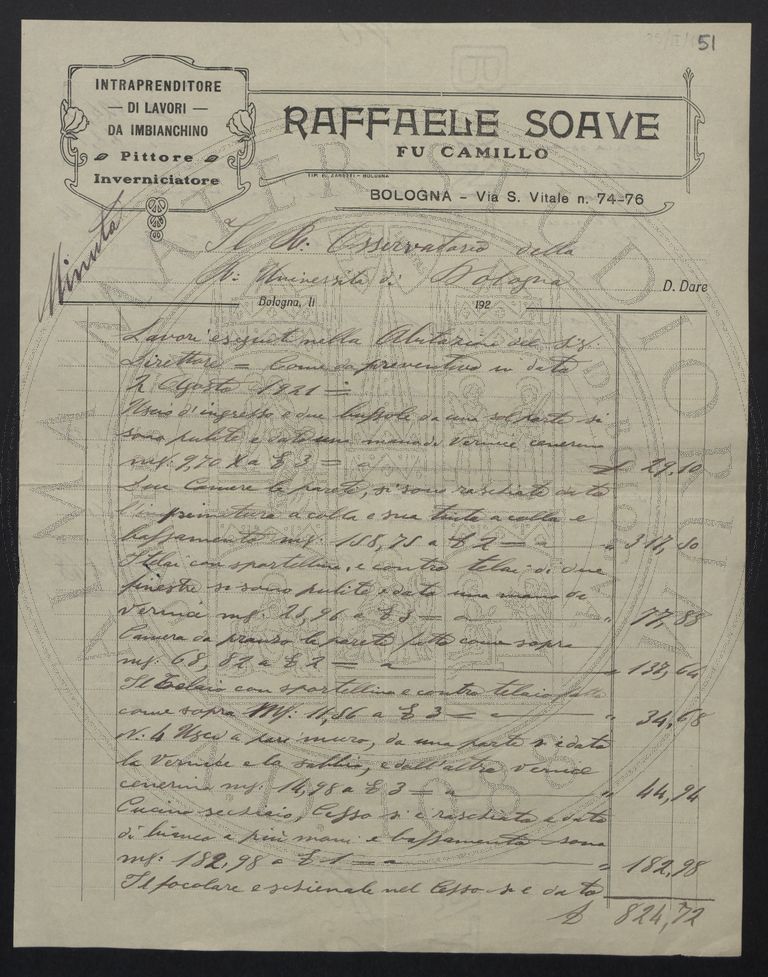 51
INTRAPRENDITORE
DI LAVORI
DA IMBIANCHINO
Pittore
Inverniciatore
RAFFAELE SOAVE
FU CAMILLO
BOLOGNA - Via S. Vitale n. 74-76
Minuta
Il R: Osservatorio della
R: Università di Bologna
D. Dare
Bologna, li 192
Lavori eseguiti nella Abitazione del Sig.
Direttore = Come da preventivo in data
2 Agosto 1921 =
Uscio d'ingresso e due bussole da una sol parte si
sono pulite e dato una mano di vernice cenerino
mq. 9,70 a £ 3 = a £ 29,10
Due Camere le parete, si sono raschiate dato
l'imprimitura a colla e sua tinta a colla e
bassamento mq: 158,75 a £ 2 = a " 317,50
Telai con sportellino, e contro telai di due
finestre si sono pulite e dato una mano di
vernice mq: 25,96 a £ 3 = a " 77,88
Camera da pranzo le parete fatto come sopra
mq: 68,82 a £ 2 = a " 137,64
Il Telaio con sportellino e contro telaio fatto
come sopra Mq: 11,56 a £ 3 = " 34,68
N: 4 Usci a pari muro, da una parte si è dato
la vernice e la sabbia, e dall'altra vernice
cenerino mq: 14,98 a £ 3 = a " 44,94
Cucina secchiaio, Cesso si è raschiato e dato
di bianco a più mani e bassamento sono
mq: 182,98 a £ 1 = a " 182,98
Il focolare e schienale nel Cesso si è dato
£ 824,72
ALMA MATER STUDIORUM